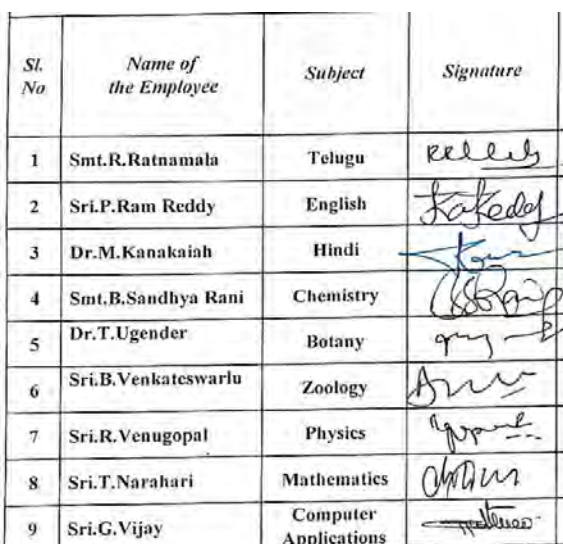 Sl. No
Name of the Employee
Subject
Signature
1 Smt.R.Ratnamala Telugu
2 Sri.P.Ram Reddy English
3 Dr.M.Kanakaiah Hindi
4 Smt.B.Sandhya Rani Chemistry
5 Dr.T.Ugender Botany
6 Sri.B.Venkateswarlu Zoology
7 Sri.R.Venugopal Physics
8 Sri.T.Narahari Mathematics
9 Sri.G.Vijay Computer Applications